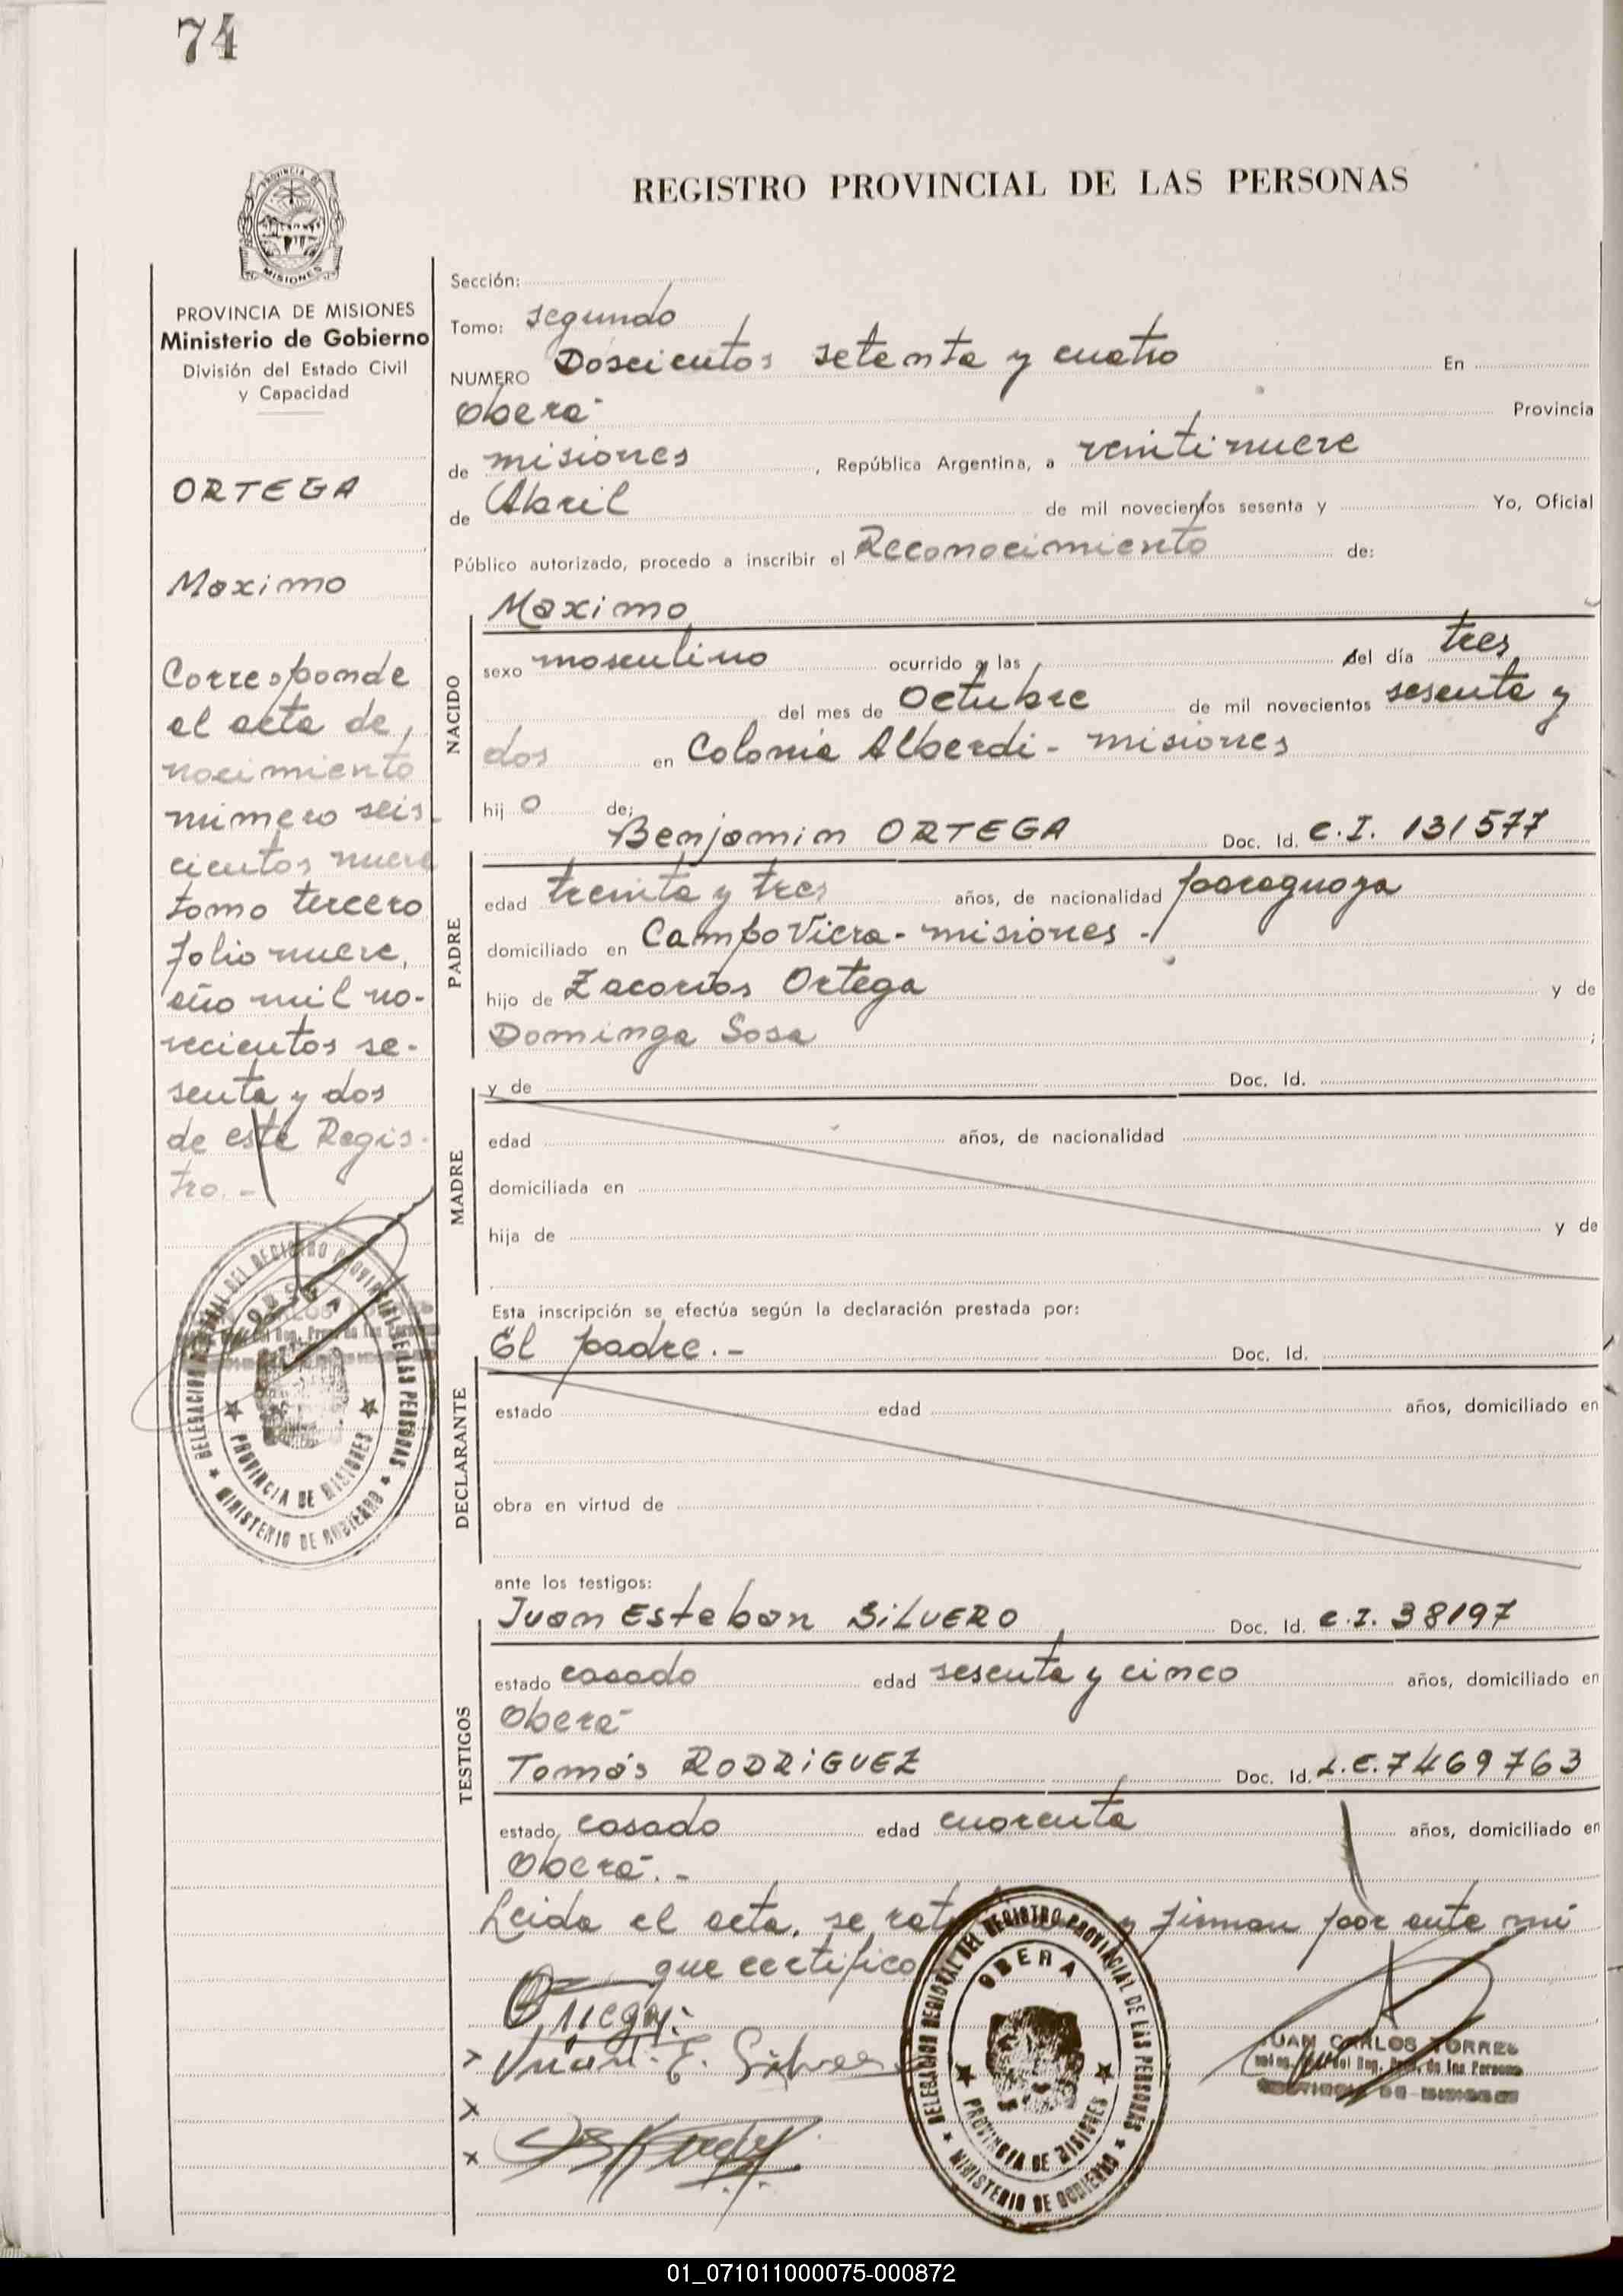 74
REGISTRO PROVINCIAL DE LAS PERSONAS
MISIONES
PROVINCIA DE MISIONES
Ministerio de Gobierno
División del Estado Civil
y Capacidad
ORTEGA
Maximo
Corresponde
al acta de
nacimiento
número seis
cientos nueve
tomo tercero
folio nueve,
año mil no-
vecientos se-
senta y dos
de este Regis-
tro.-
DELEGACION REGIONAL DEL REGISTRO PROVINCIAL DE LAS PERSONAS
OBERA
PROVINCIA DE MISIONES
MINISTERIO DE GOBIERNO
Sección:
Tomo: segundo
NUMERO Doscientos setenta y cuatro En
Oberá Provincia
de misiones, República Argentina, a veintinueve
de Abril de mil novecientos sesenta y Yo, Oficial
Público autorizado, procedo a inscribir el Reconocimiento de:
NACIDO
Maximo
sexo masculino ocurrido a las del día tres
del mes de Octubre de mil novecientos sesenta y
dos en Colonia Alberdi - misiones
hij o de:
PADRE
Benjamin ORTEGA Doc. Id. C.I. 131577
edad treinta y tres años, de nacionalidad paraguaya
domiciliado en Campo Viera - misiones -
hijo de Zacarías Ortega y de
Dominga Sosa ;
MADRE
y de Doc. Id.
edad años, de nacionalidad
domiciliada en
hija de y de
Esta inscripción se efectúa según la declaración prestada por:
DECLARANTE
El padre.- Doc. Id.
estado edad años, domiciliado en
obra en virtud de
ante los testigos:
TESTIGOS
Juan Esteban SILVERO Doc. Id. C.I. 38197
estado casado edad sesenta y cinco años, domiciliado en
Oberá
Tomás RODRIGUEZ Doc. Id. L.E. 7469763
estado casado edad cuarenta años, domiciliado en
Oberá.-
Leida el acta, se y firman por ante mi
que certifico
Juan E. Silvero
DELEGACION REGIONAL DEL REGISTRO PROVINCIAL DE LAS PERSONAS
OBERA
PROVINCIA DE MISIONES
MINISTERIO DE GOBIERNO
JUAN CARLOS TORRES
PROVINCIA DE MISIONES
01_071011000075-000872